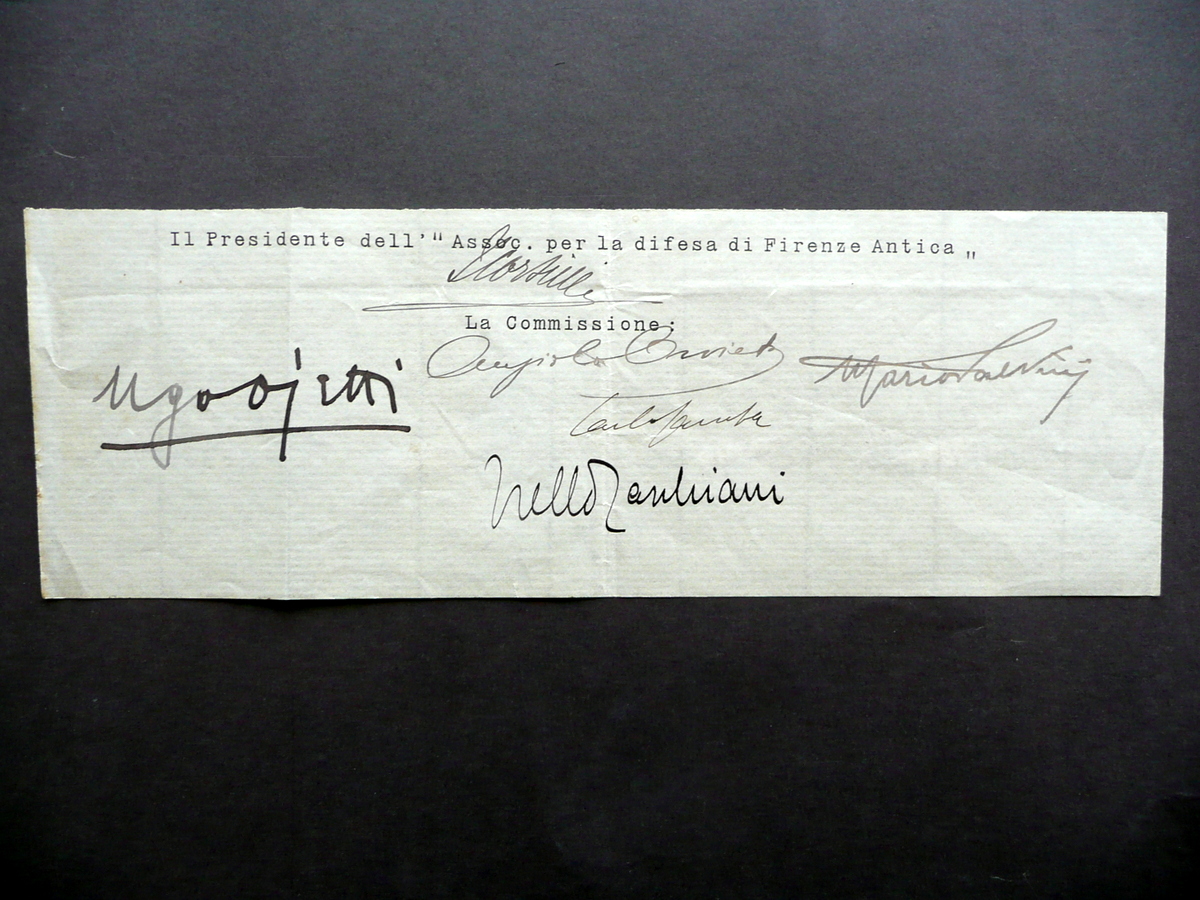 Il Presidente dell'" Assoc. per la difesa di Firenze Antica "
La Commissione:
Angiolo Orvieto
Mario Salvini
Ugo Ojetti
Carlo
Nello Tarchiani